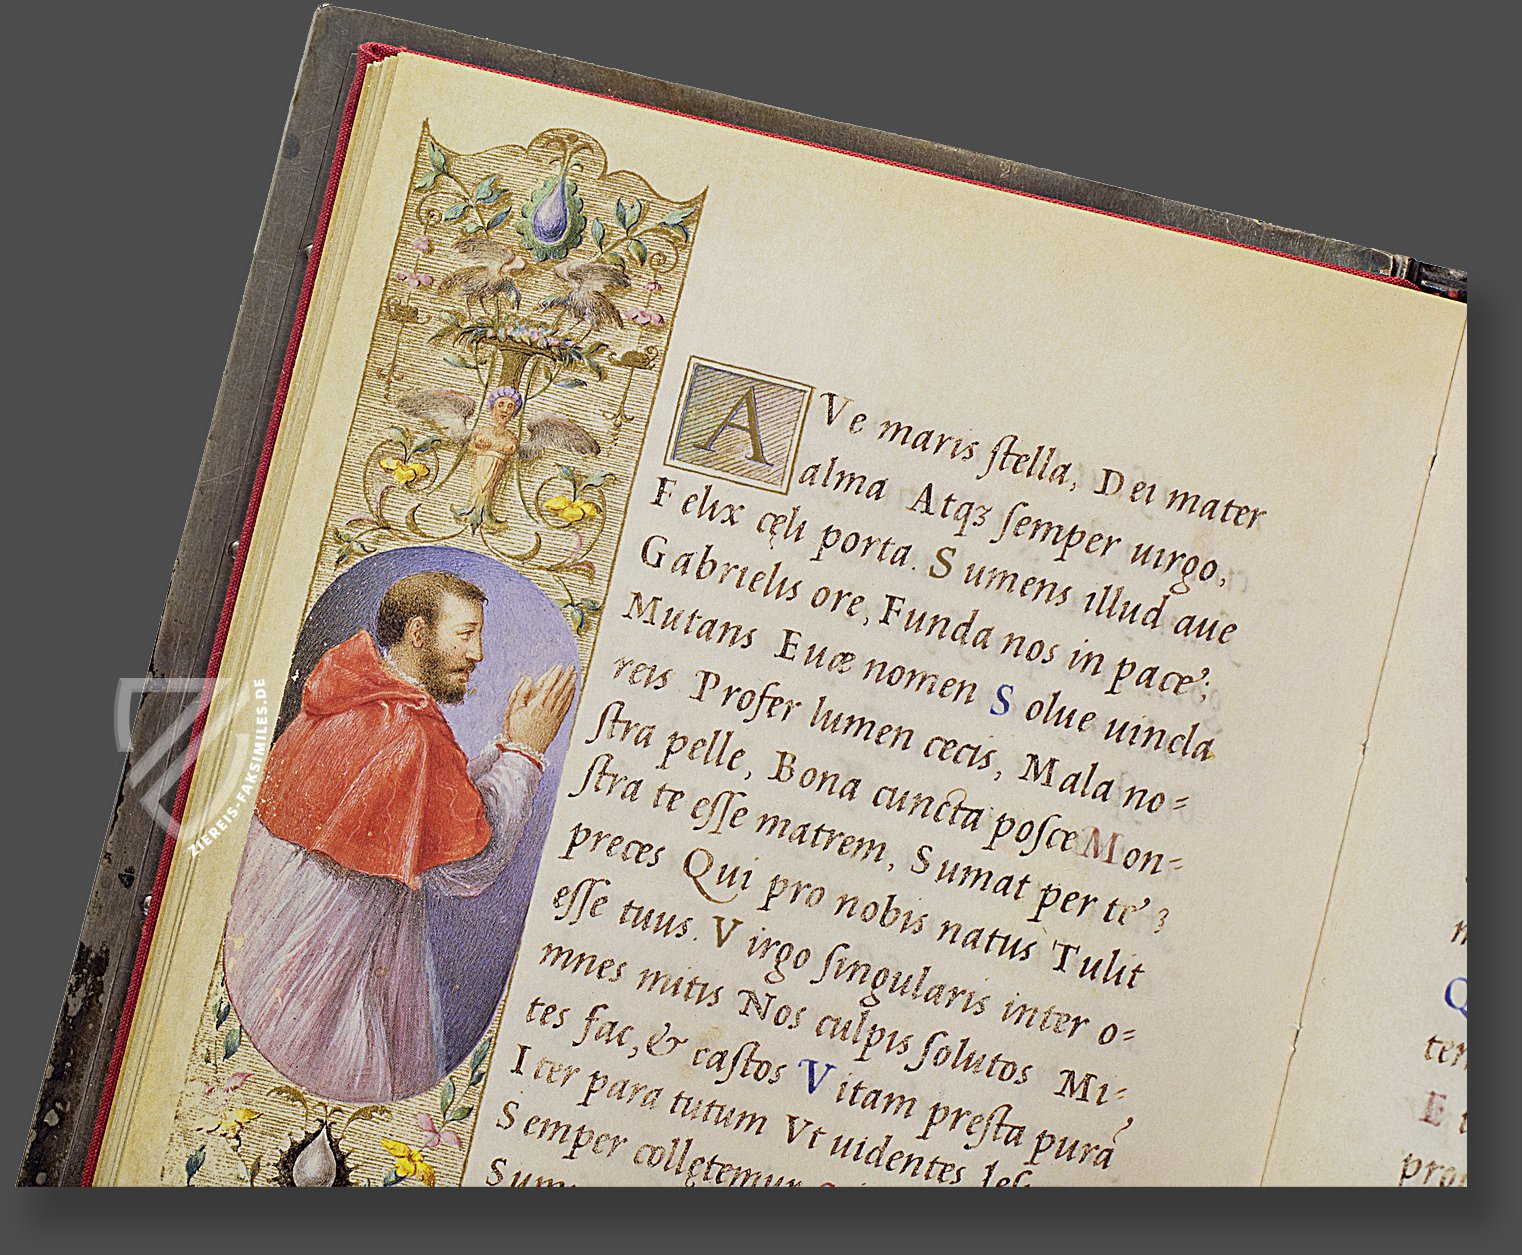 AVe maris stella, Dei mater
alma Atqꝫ semper uirgo,
Felix cęli porta. Sumens illud aue
Gabrielis ore, Funda nos in pace,
Mutans Euæ nomen Solue uincla
reis Profer lumen cecis, Mala no=
stra pelle, Bona cuncta posce Mon=
stra te esse matrem, Sumat per te
preces Qui pro nobis natus Tulit
esse tuus. Virgo singularis inter o=
mnes mitis Nos culpis solutos Mi=
tes fac, & castos Vitam presta pura
Iter para tutum Vt uidentes Ies
Semper collętemur
Sum
Q
ter
E
pro
ZIEREIS-FAKSIMILES.DE